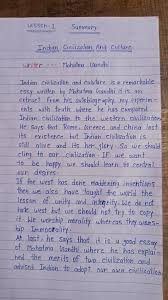 Lesson-1 Summary
Indian Civilization And Culture
writer - Mahatma Gandhi
Indian civilization and culture is a remarkable
essay written by Mahatma Gandhi it is an
extract from his autobiography, my experim-
ents with truth where he has compared
Indian civilization to the western civilization
He says that Rome, Greece and china lost
its existence but Indian civilization is
still alive and its her glory. So we should
cling to our civilization. If we want
to be happy we should learn to control
our desires.
If the west has done machinery inventions
then we also have taught the world the
lesson of unity and integrity. We do not
hate west but we should not try to copy
it. We worship morality whereas they wors-
hip Immorality.
At last he says that it is a good essay
of Mahatma Gandhi where he has explai-
ned the merits of two civilization and
advised Indian to adopt our own civilization